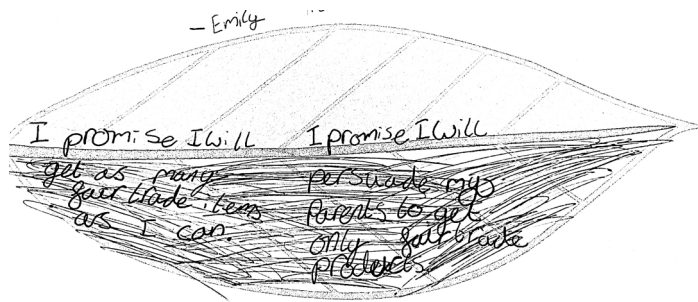 – Emily
I promise I will
get as many
fairtrade items
as I can.
I promise I will
persuade my
Parents to get
only fairtrade
products.